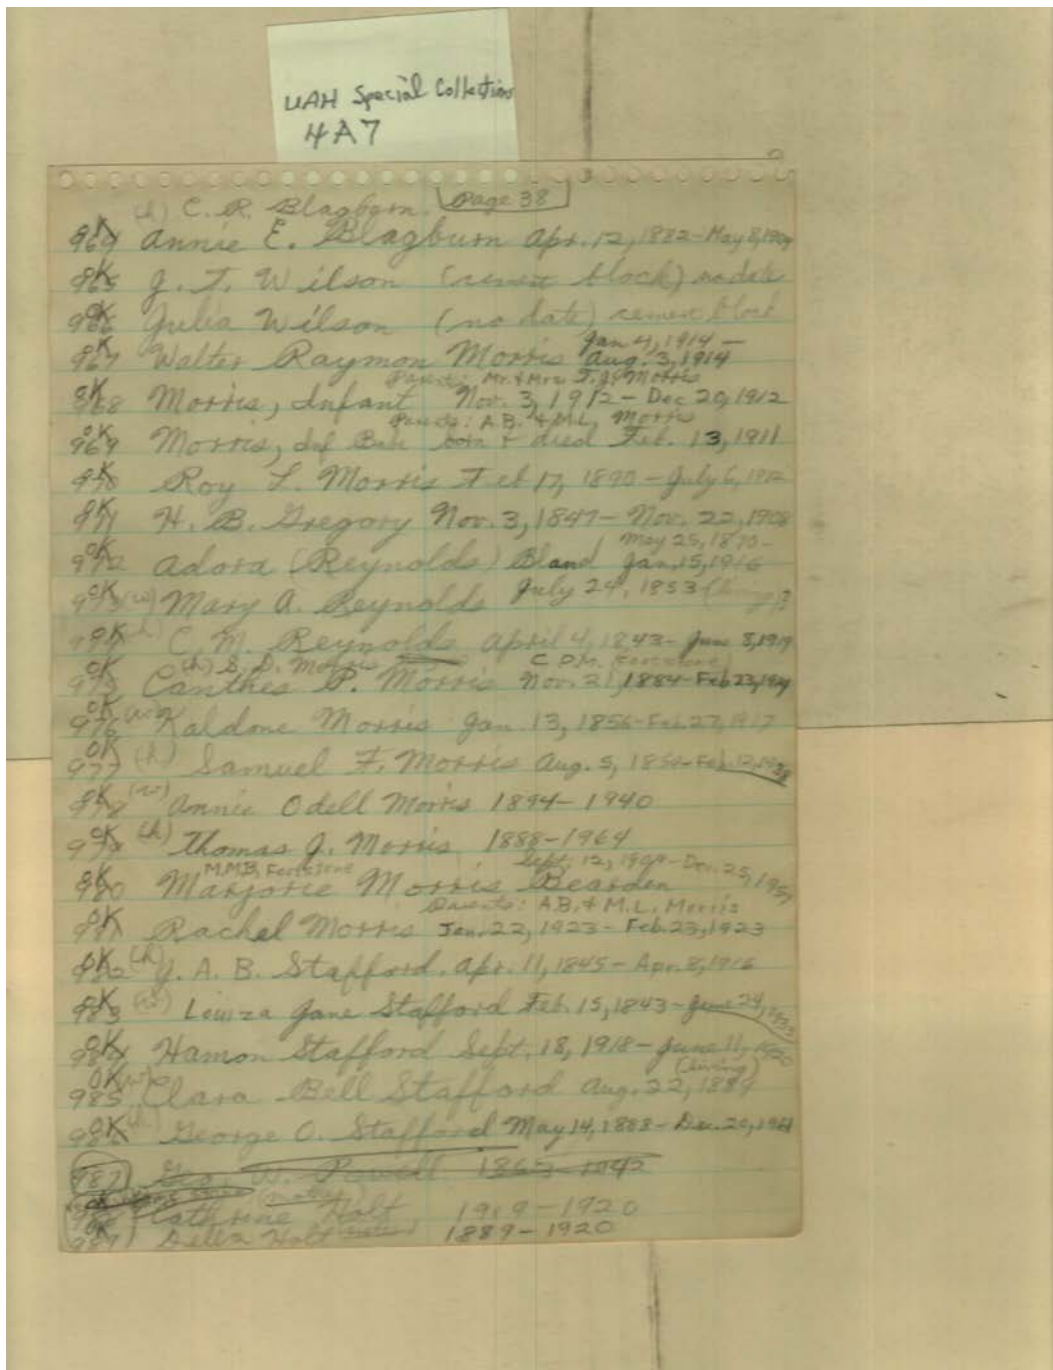 UAH Special Collection
4A7
Page 38
(h) C. R. Blagburn
964 OK Annie E. Blagburn Apr. 12, 1882 - May 8, 1909
965 OK J. T. Wilson (cement block) no date
966 OK Julia Wilson (no date) cement block
Jan 4, 1914 -
967 OK Walter Raymon Morris Aug. 3, 1914
Parents: Mr. & Mrs. T. J. Morris
968 OK Morris, Infant Nov. 3, 1912 - Dec 20, 1912
Parents: A.B. & M.L. Morris
969 OK Morris, Inf born & died Feb. 13, 1911
970 OK Roy L. Morris Feb 17, 1890 - July 6, 1912
971 OK H. B. Gregory Nov. 3, 1847 - Nov. 22, 1908
May 25, 1870 -
972 OK Adora (Reynolds) Bland Jan. 15, 1916
973 OK (w) Mary A. Reynolds July 24, 1853 (living)
974 OK (h) C. M. Reynolds April 4, 1843 - June 8, 1919
(h) S. D. Morris C P.M. Footstone
975 OK Canthes P. Morris Nov. 21, 1884 - Feb 23,
976 OK (w) Kaldone Morris Jan. 13, 1856 - Feb. 27, 1917
977 OK (h) Samuel F. Morris Aug. 5, - Feb. 12,
978 OK (w) Annie Odell Morris 1894 - 1940
979 OK (h) Thomas J. Morris 1888 - 1964
M.M.B. Footstone Sept. 12, - Dec. 25,
980 OK Marjorie Morris Bearden
Parents: A.B. & M.L. Morris
981 OK Rachel Morris Jan. 22, 1923 - Feb. 23, 1923
982 OK (h) J. A. B. Stafford. Apr. 11, 1845 - Apr. 8, 1916
983 OK (w) Louiza Jane Stafford Feb. 15, 1843 - June 24,
984 OK Hamon Stafford Sept. 18, 1918 - June 11, 1920
(living)
985 OK (w) Clara Bell Stafford Aug. 22, 1889
986 OK (h) George O. Stafford May 14, 1888 - Dec. 20,
987 Geo. W. Powell 1865 - 1942
OK Cathrine Holt 1919 - 1920
Della Holt 1889 - 1920